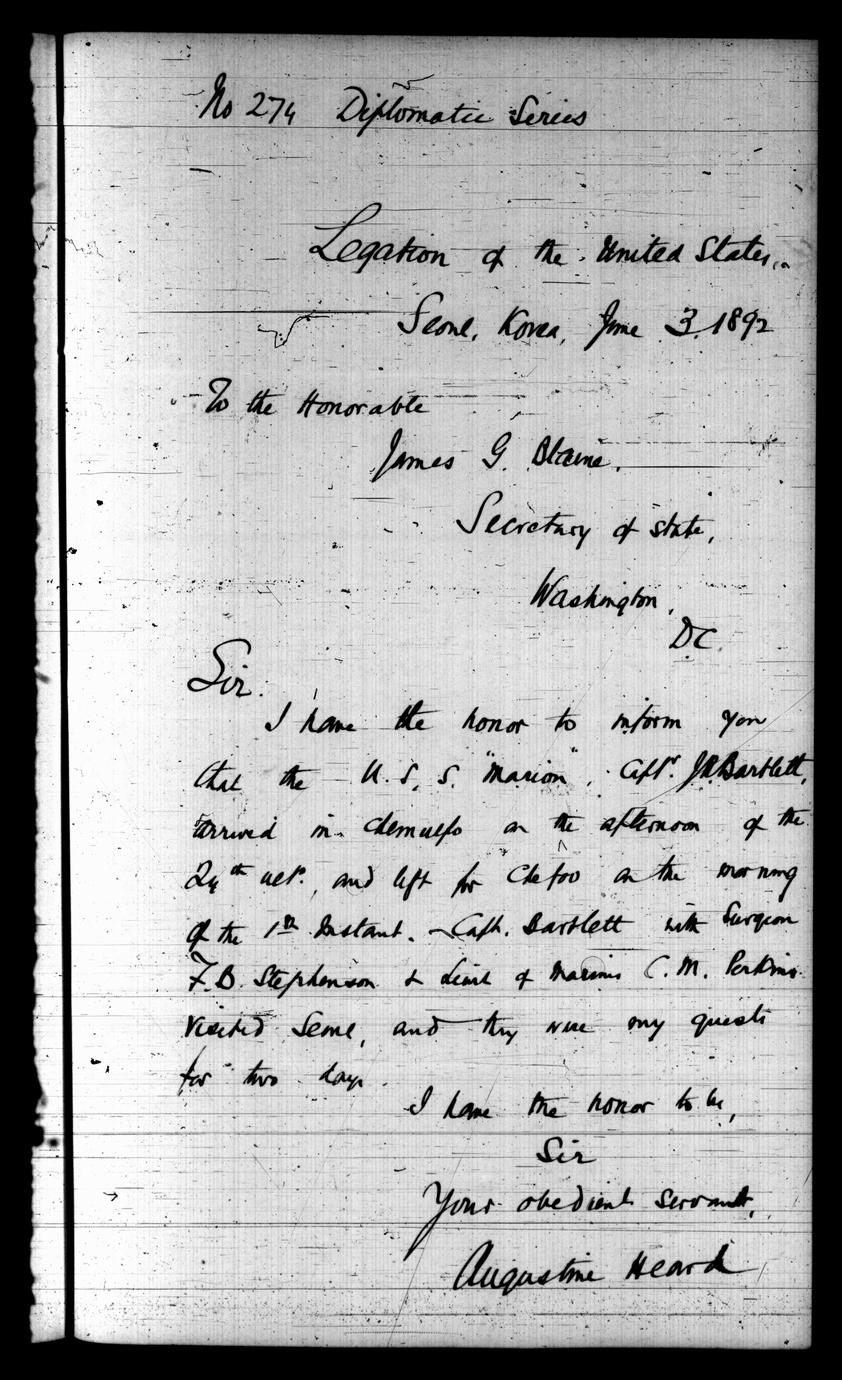 No 274 Diplomatic Series
Legation of the United States,
Seoul, Korea, June 3, 1892
To the Honorable
James G. Blaine,
Secretary of State,
Washington,
DC
Sir:
I have the honor to inform you
that the U.S.S. "Marion", Capt. J.R. Bartlett,
arrived in Chemulpo on the afternoon of the
24th ult., and left for Chefoo on the morning
of the 1st Instant. Capt. Bartlett with Surgeon
F.B. Stephenson & Lieut of Marines C.M. Perkins
visited Seoul, and they were my guests
for two days.
I have the honor to be,
Sir
Your obedient servant,
Augustine Heard